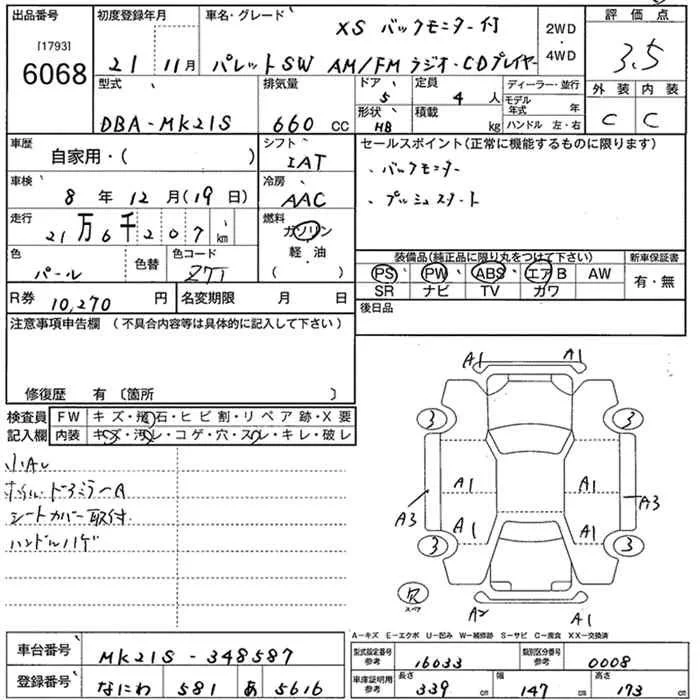 出品番号 初度登録年月 車名・グレード XS バックモニター付 2WD・4WD 評価点
[1793]
6068 21 11月 パレットSW AM/FMラジオ・CDプレイヤー 3.5
型式 排気量 ドア 定員 ディーラー・並行 外装 内装
DBA-MK21S 660 CC 5 4 人 モデル年式 年 C C
形状 HB 積載 kg ハンドル 左・右
車歴 シフト セールスポイント(正常に機能するものに限ります)
自家用・( ) IAT ・バックモニター
車検 冷房 ・プッシュスタート
8年12月(19日) AAC
走行 燃料
21万6千207km ガソリン
軽・油
( )
色 色替 色コード 装備品(純正品に限り丸をつけて下さい) 新車保証書
パール Z7T PS PW ABS エアB AW 有・無
SR ナビ TV カワ
R券 10,270 円 名変期限 月 日 後日品
注意事項申告欄(不具合内容等は具体的に記入して下さい)
修復歴 有〔箇所 〕
検査員 FW キズ・飛石・ヒビ割・リペア跡・X要
記入欄 内装 キズ・汚レ・コゲ・穴・スレ・キレ・破レ
小AU
ホイル・ドアミラーA
シートカバー取付
ハンドルハゲ
A1 A1
3 3
A1 A1
A3 A3
A1 A1
3 3
欠
スペア
A2 A1
A-キズ E-エクボ U-凹み W-補修跡 S-サビ C-腐食 XX-交換済
車台番号 MK21S-348587 型式指定番号 参考 16033 類別区分番号 参考 0008
登録番号 なにわ 581 あ 5616 車庫証明用 参考 長さ 339 cm 幅 147 cm 高さ 173 cm